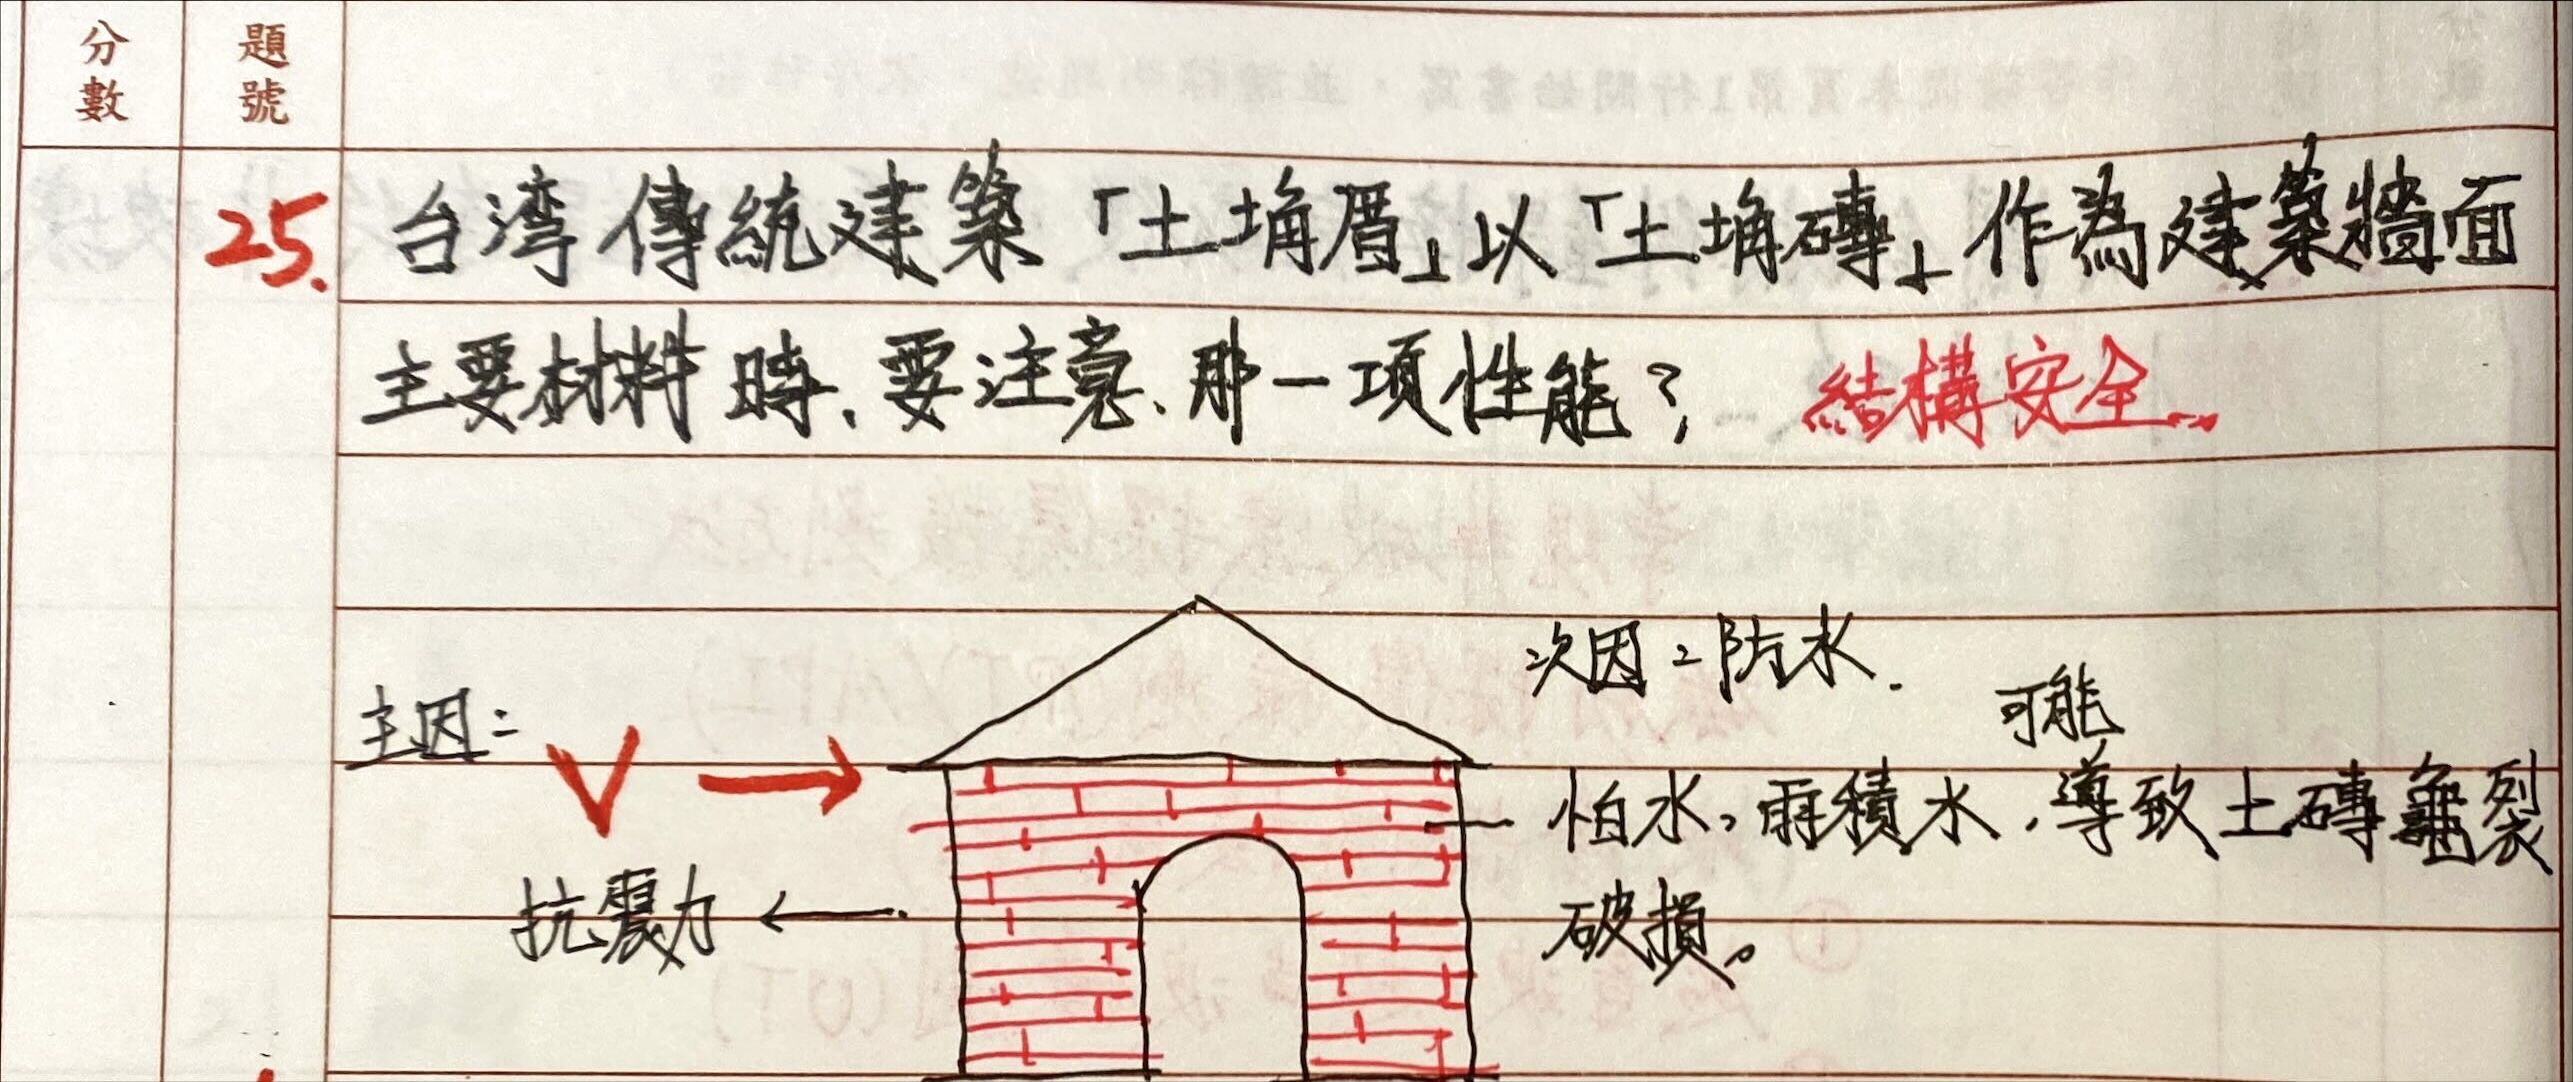 分數 題號
25. 台湾傳統建築「土埆厝」以「土埆磚」作為建築牆面
主要材料時，要注意、那一項性能？ 結構安全
主因：
V →
抗震力 ←
次因：防水．
可能
怕水，雨積水，導致土磚龜裂
破損。